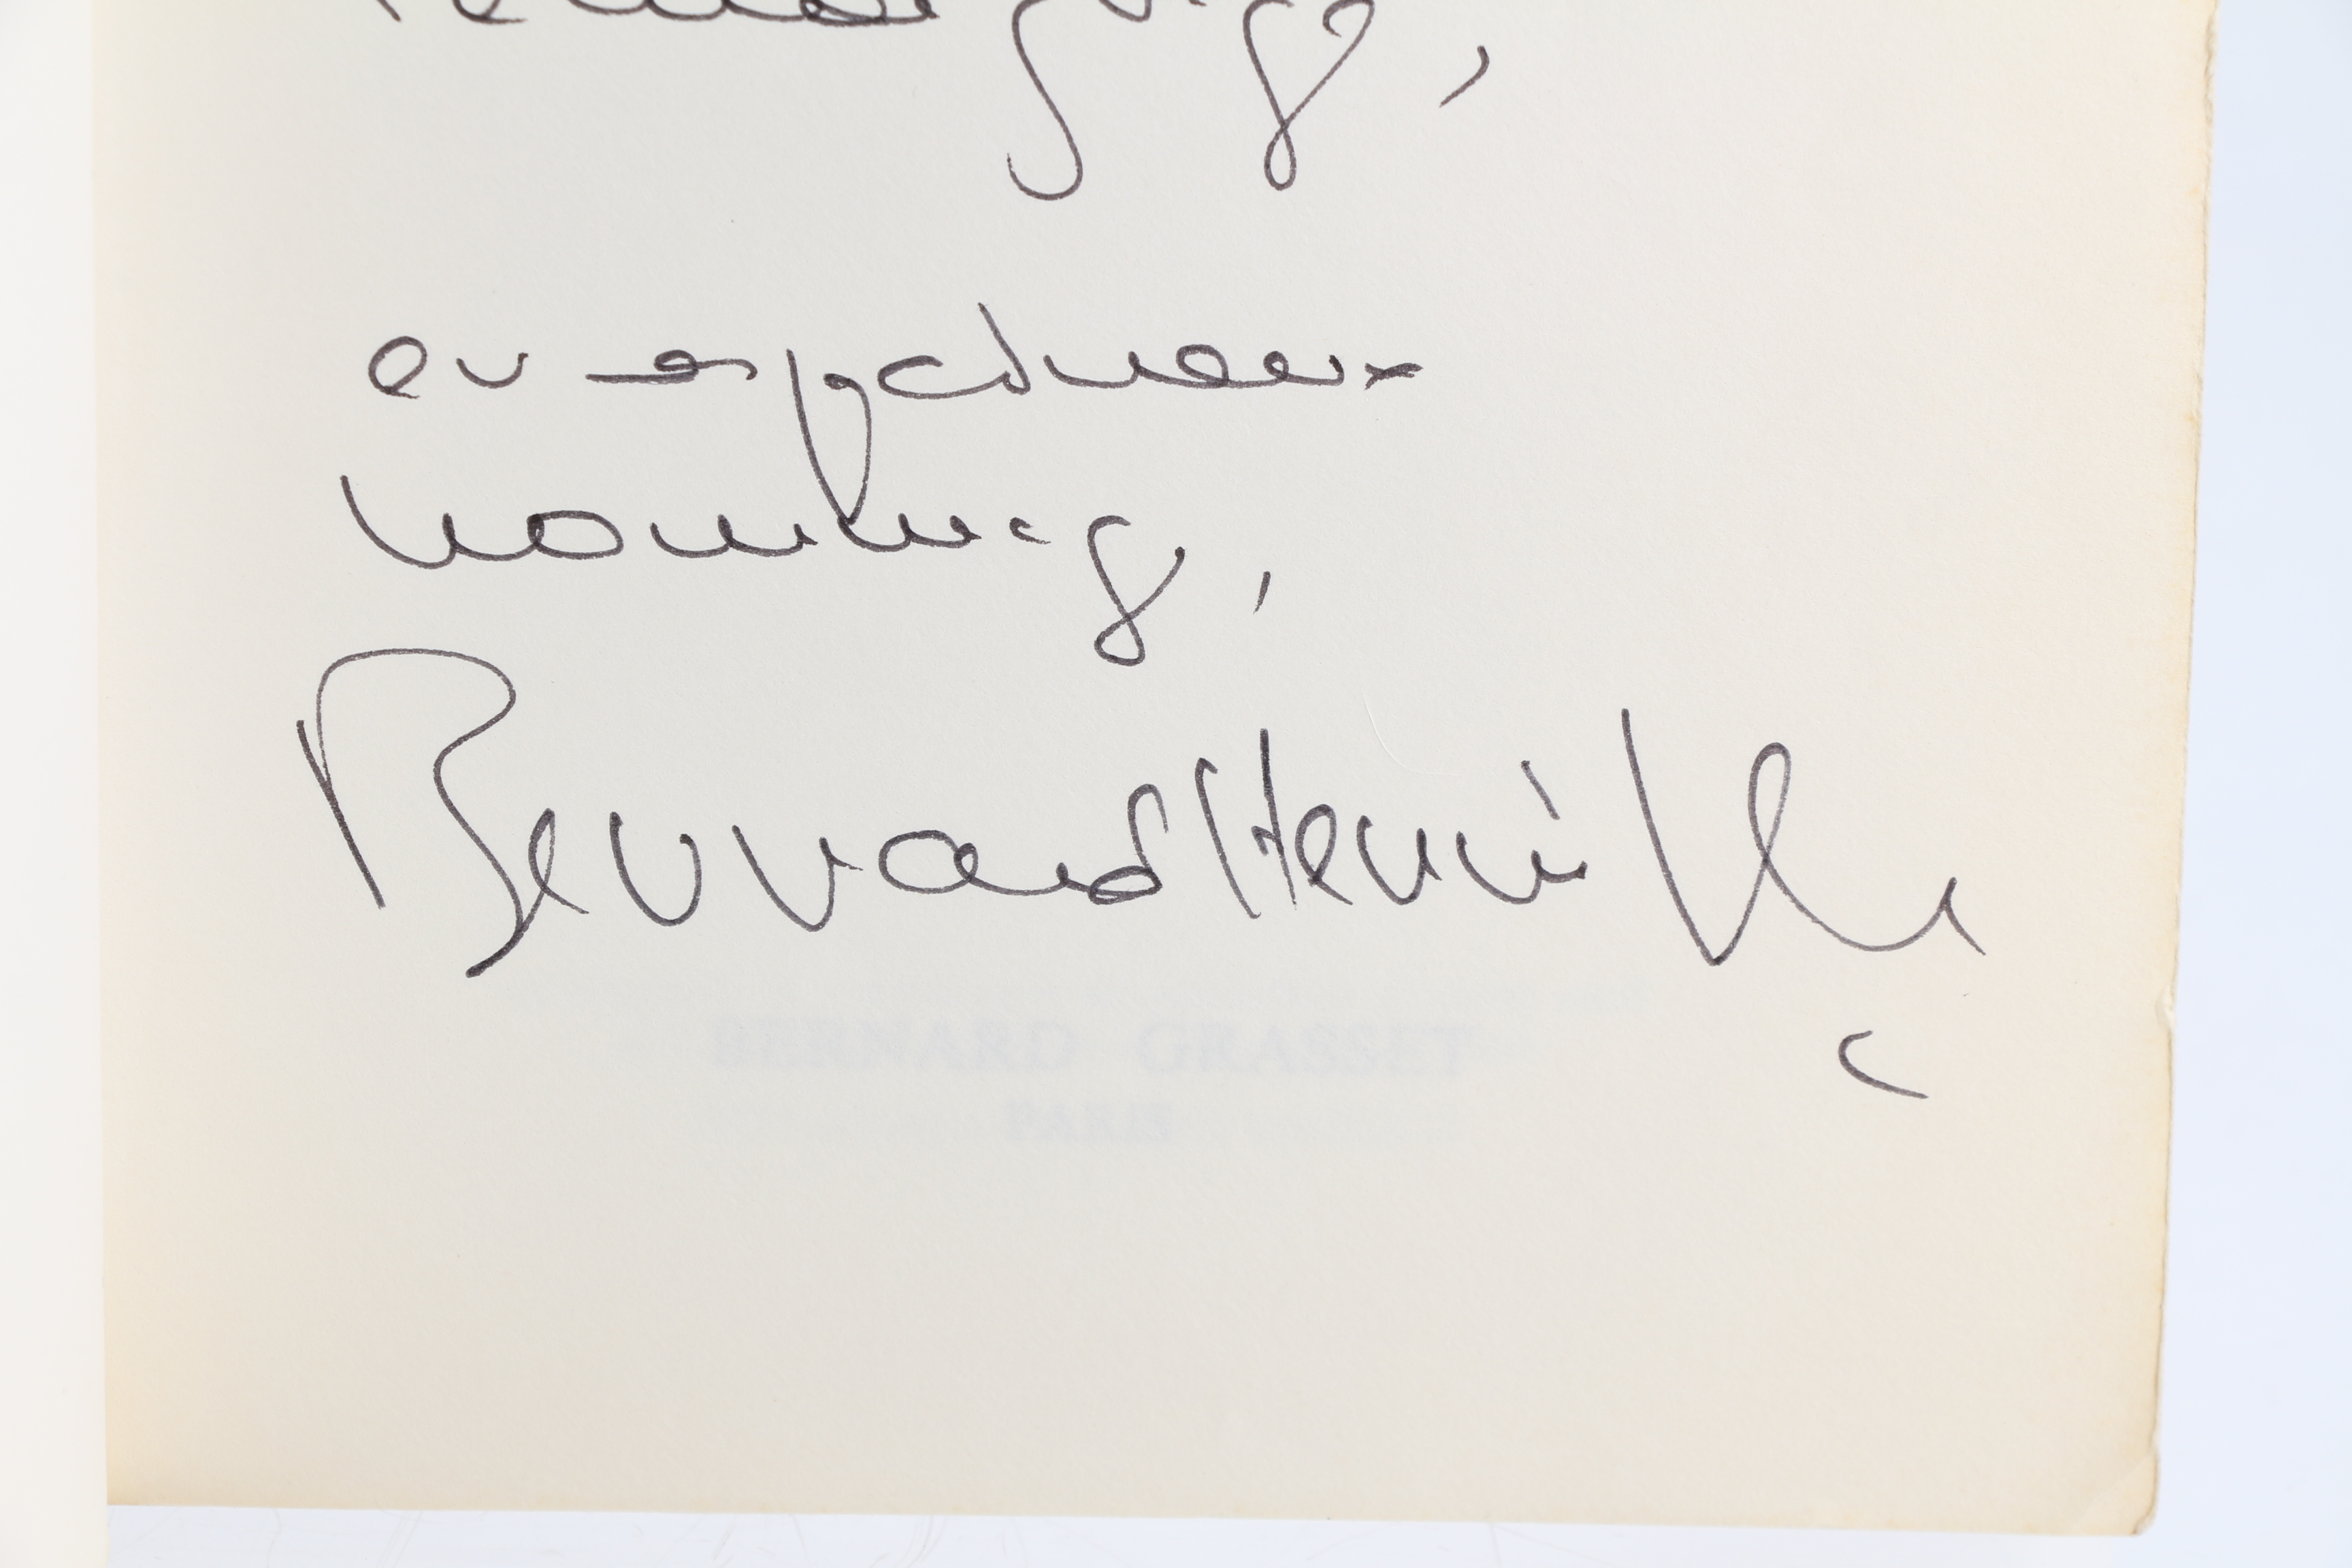 en respectueux
hommage,
Bernard Henri Lévy
BERNARD GRASSET
PARIS